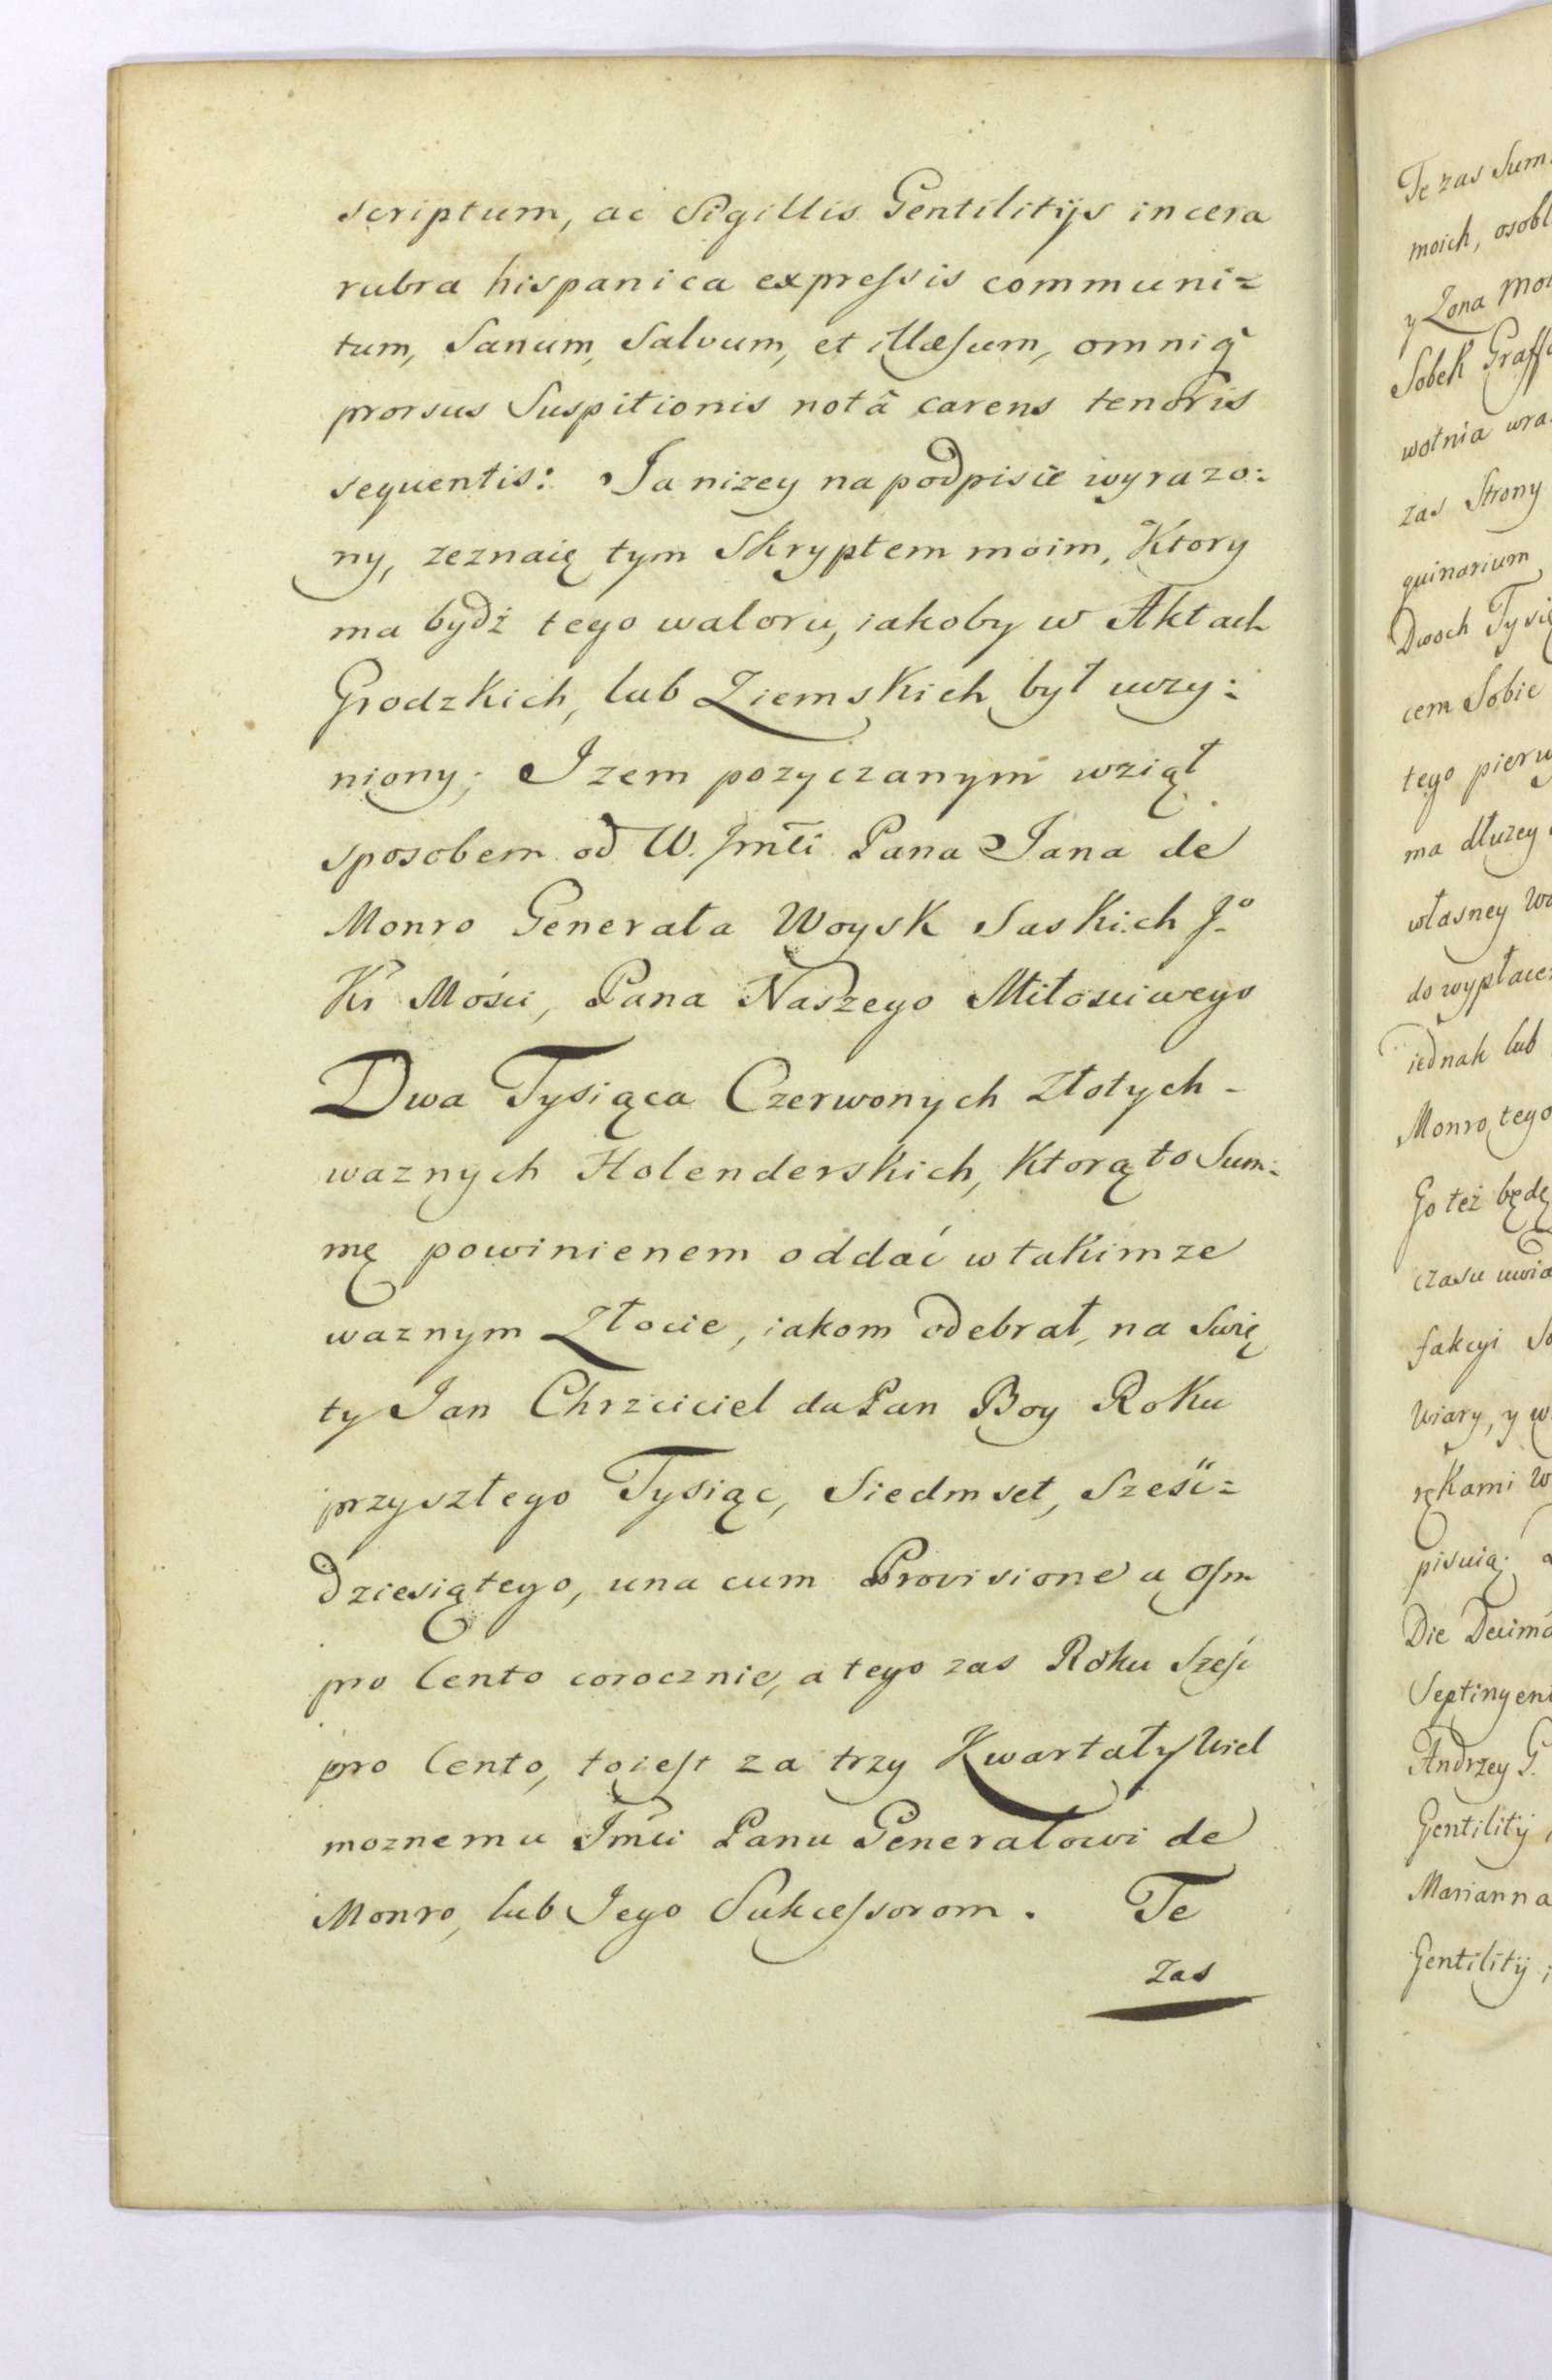 scriptum, ac Sigillis Gentilitijs in cera
rubra hispanica expressis communi=
tum, Sanum, Salvum, et illæsum, omniq̃
prorsus Suspitionis notâ carens tenoris
sequentis: Ja nizey na podpisie wyrazo:
ny, zeznaię tym Skryptem moim, Ktory
ma bydź tego waloru, iakoby w Aktach
Grodzkich, lub Ziemskich był uczy:
niony; Jzem pozyczanym wziął
sposobem od W. Jmći Pana Jana de
Monro Generała Woysk Saskich J.º
Kr Mości, Pana Naszego Miłosciwego
Dwa Tysiąca Czerwonych Złotych -
waznych Holenderskich, Ktorą to Sum:
mę powinienem oddać w takimze
waznym Złocie, iakom odebrał, na Swię
ty Jan Chrzciciel da Pan Boy Roku
przyszłego Tysiąc, Siedmset, Sześć=
dziesiątego, una cum Provisione a osm
pro Cento corocznie, a tego zas Roku Sześć
pro Cento, to iest za trzy Kwartały Wiel
moznemu Jmći Panu Generałowi de
Monro, lub Jego Sukcessorom. Te
zas
Te zas Sum
moich, osobl
y Zona
Sobek Graff
wotnia
zas Strony
quinarium
Dwoch Tysią
cem Sobie
tego pierw
ma dłuzey
własney
do wypłace
iednak lub
Monro, tego
Go też będę
czasu
fakcyi
Wiary, y
rękami
pisuią.
Die Decimâ
Septingen
Andrzey G.
Gentilitij
Marianna
Gentilitij